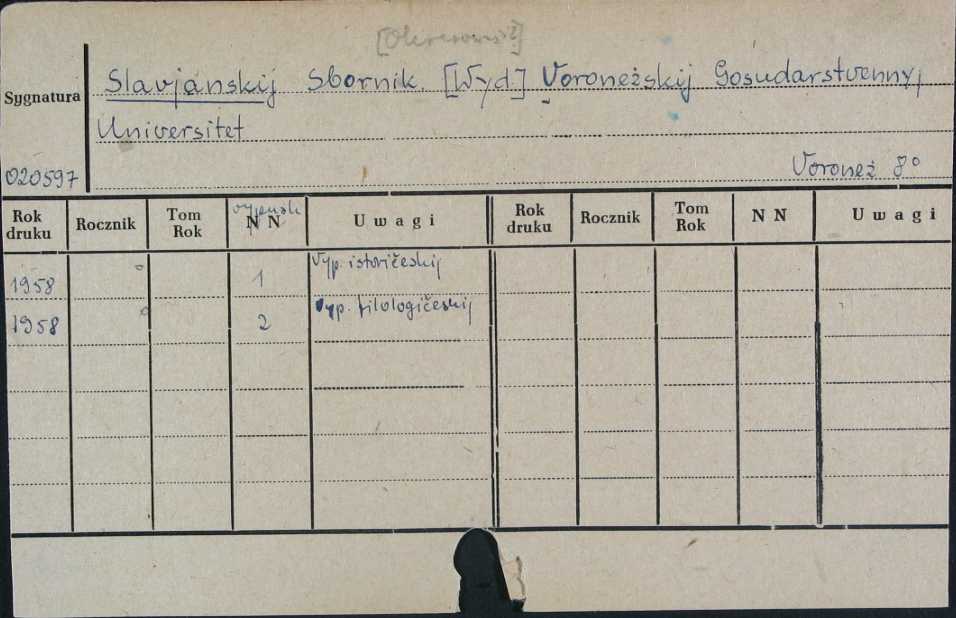 Slavjanskij Sbornik. [Wyd.] Voronežskij Gosudarstvennyj
Sygnatura
Universitet
020597
Voronež 8°
Rok druku Rocznik Tom Rok vypusk N N Uwagi Rok druku Rocznik Tom Rok N N Uwagi
1958 1 Vyp. istoričeskij
1958 2 Vyp. filologičeskij